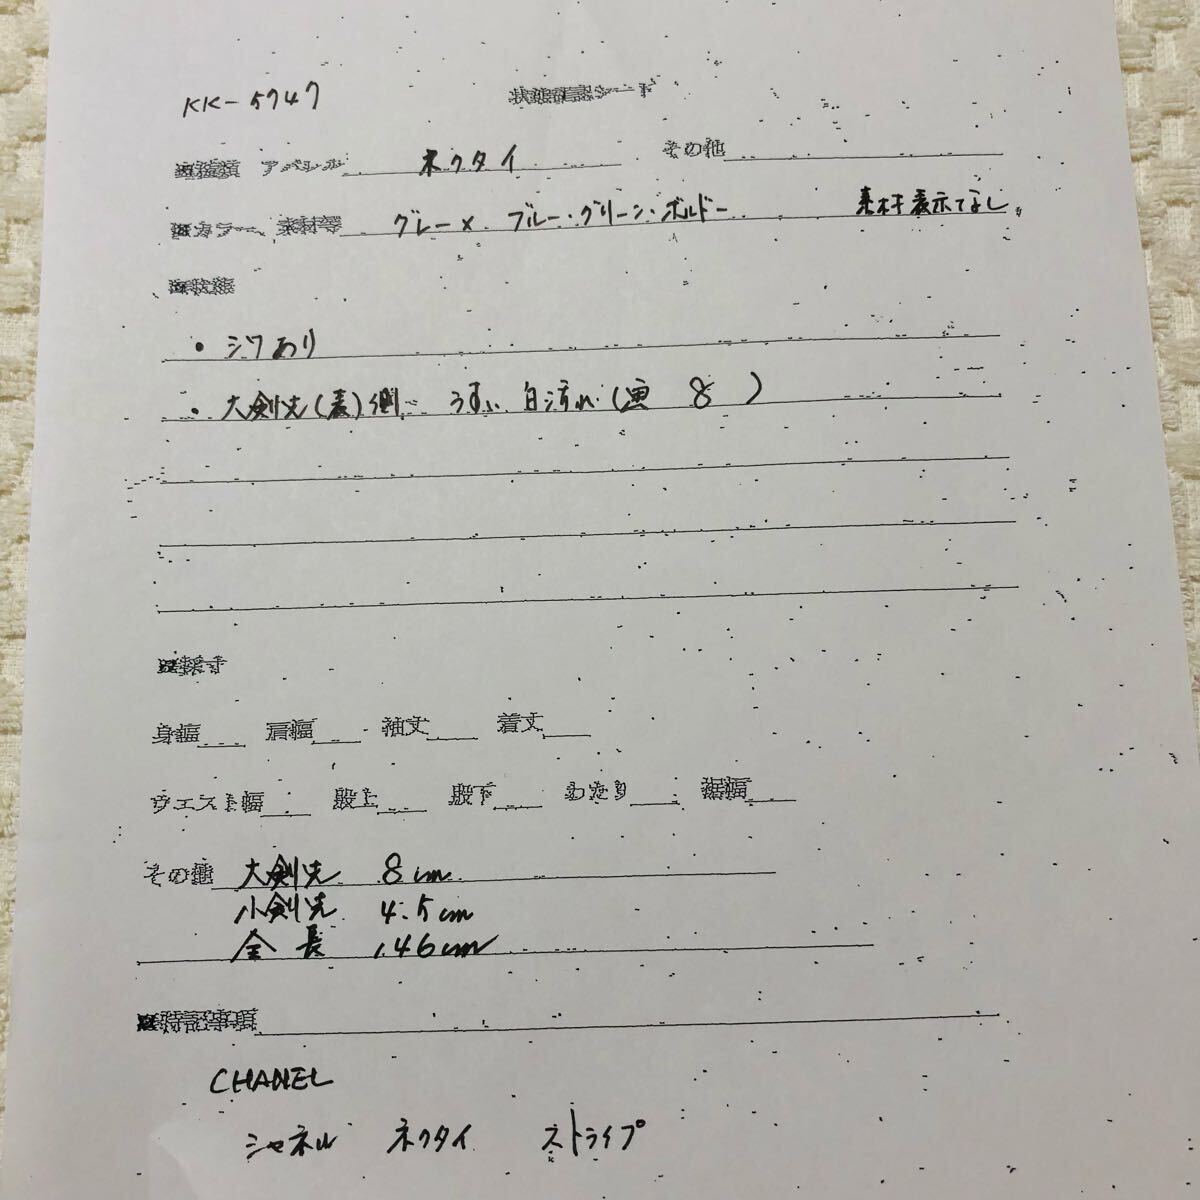 KK-5747 状態確認シート
■種類 アパレル ネクタイ その他
■カラー、素材等 グレー× ブルー・グリーン・ボルドー 素材表示なし。
■状態
・シワあり
・大剣先(表)側に うすい 白汚れ(画 8 )
■採寸
身幅 肩幅 袖丈 着丈
ウエスト幅 股上 股下 わたり 裾幅
その他 大剣先 8cm
小剣先 4.5cm
全長 146cm
■特記事項
CHANEL
シャネル ネクタイ ストライプ